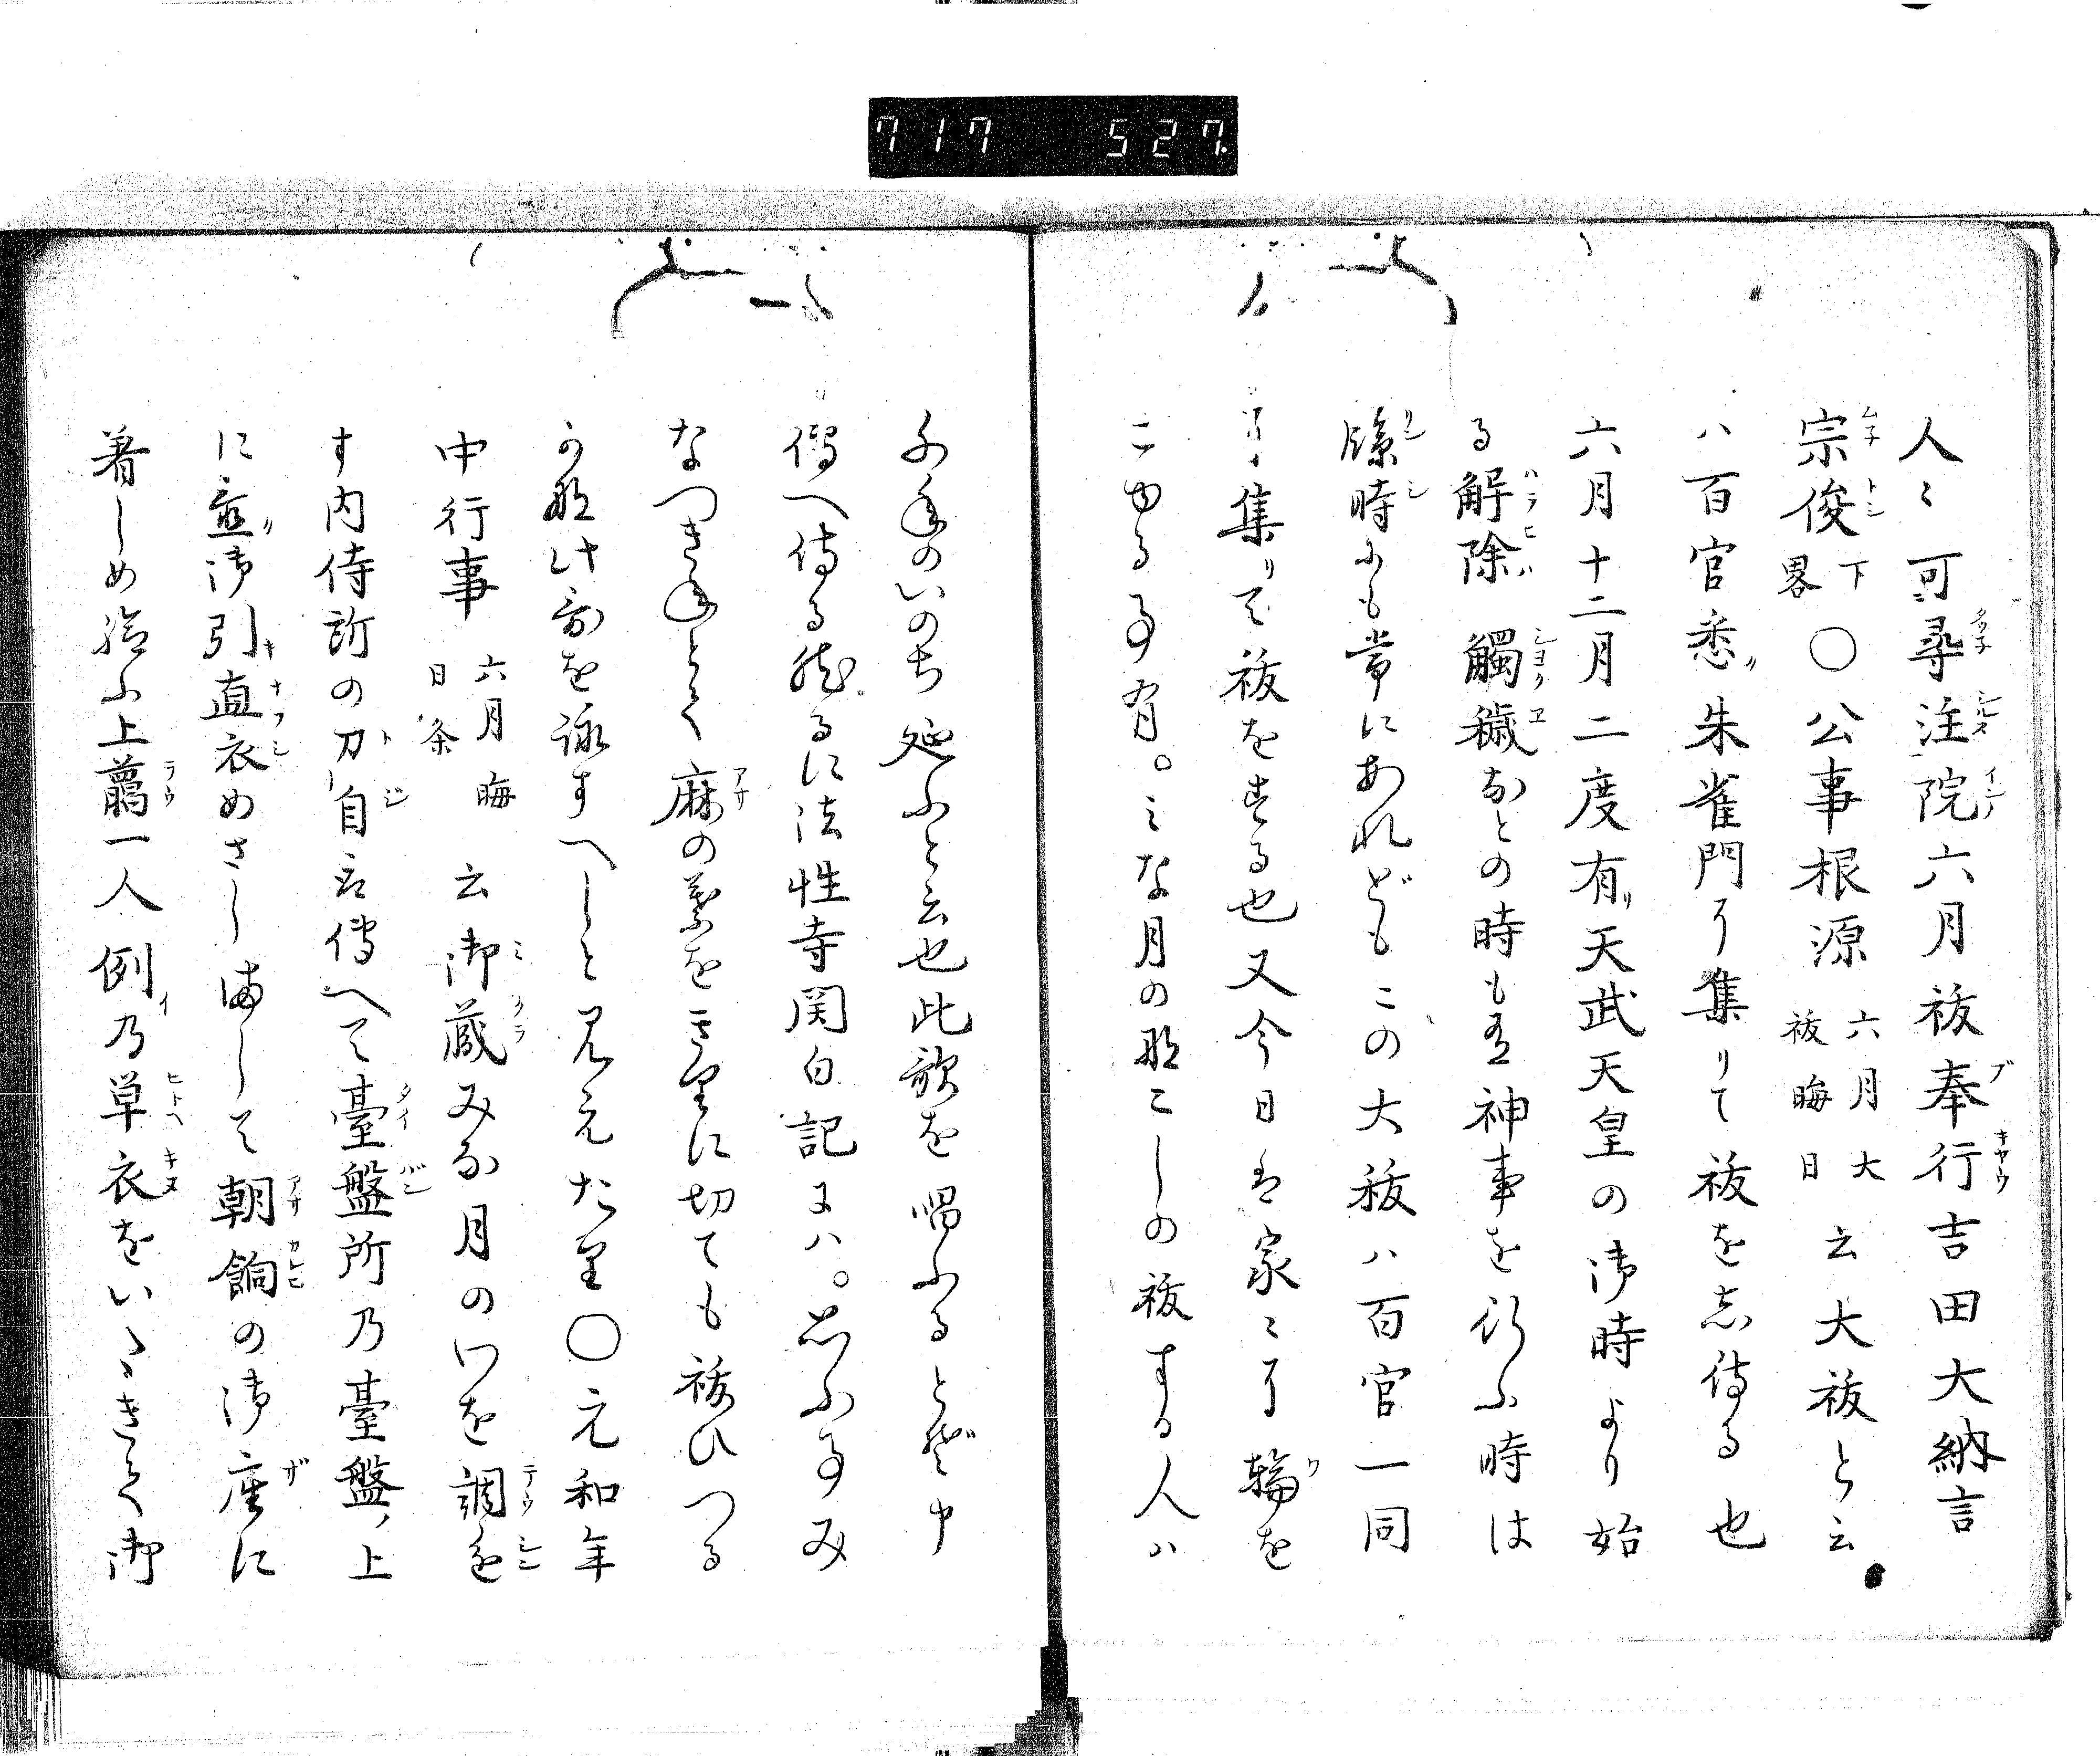 717 527
人〻可尋注院六月祓奉行吉田大納言
宗俊下畧〇公事根源六月大祓晦日云大祓と云
ハ百官悉朱雀門ニ集りて祓を志侍る也
六月十二月二度有天武天皇の御時より始
る解除觸穢なとの時も又神事を行ふ時は
臨時にも常にあれどもこの大祓ハ百官一同
ニ集りて祓をする也又今日は家〻ニ輪を
こゆる事有。みな月の那こしの祓する人ハ
千年のいのち延ふと云也此歌を唱ふるとぞ申
傳へ侍る然るに法性寺関白記にハ。思ふ事み
なつきねとて麻の葉をきりに切ても祓ひつる
か那此歌を詠すへしと見えたり〇元和年
中行事六月晦日条云御蔵みな月のわを調進
す内侍所の刀自言傳へて臺盤所乃臺盤ノ上
に置御引直衣めさしましして朝餉の御座に
著しめ給ふ上﨟一人例乃単衣をいたゝきて御